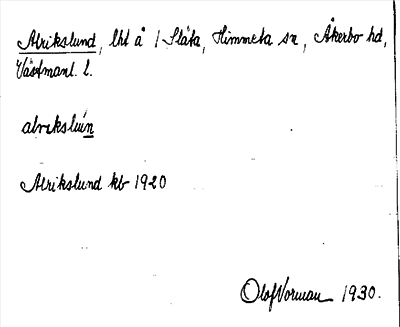 Alrikslund, lht å 1 Släta, Himmeta sn, Åkerbo hd,
Västmanl. l.
alrekslun
Alrikslund kb 1920
Olof Vorman 1930.